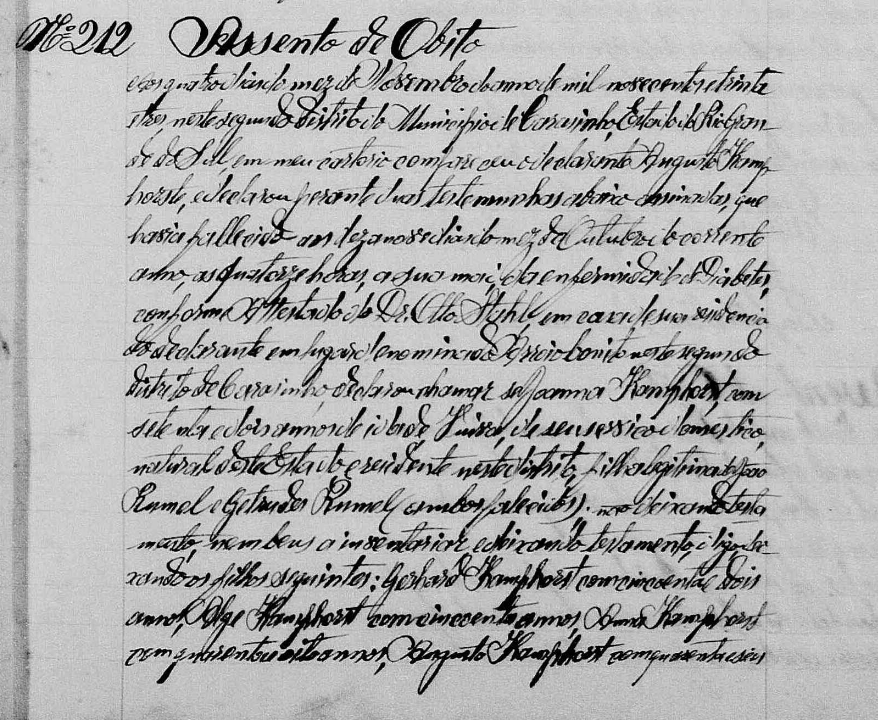 Nº 212 Assento de Obito
Aos quatro dias do mez de Novembro do anno de mil novecentos e trinta
e tres, neste segundo districto do Municipio de Carasinho, Estado do Rio Gran-
de do Sul, em meu cartorio compareceu o declarante Augusto Kamp-
horst, e declarou perante duas testemunhas abaixo assinadas, que
havia fallecido aos dezanove dias do mez de Outubro do corrente
anno, as quatorze horas, a sua mãi, da enfermidade de Diabetes,
conforme Attestado do Dr. Otto Stahl, em casa de sua residencia
do declarante em lugar denominado Arroio bonito neste segundo
distrito de Carasinho, declarou chamar se Joanna Kamphorst, com
setenta e dois annos de idade, Viuva, de seu servico domestico,
natural deste Estado e residente neste distrito, filha legitima de João
Rumel e Getrudes Rumel (ambos falecidos). não deixando testa
mento, nem bens a inventariar, e deixando testamento, digo dei-
xando os filhos seguintes: Gerhard Kamphorst com cincoenta e dois
annos, Kamphorst com cincoenta annos, Anna Kamphorst
com quarenta e oito annos, Augusto Kamphorst com quarenta e seis